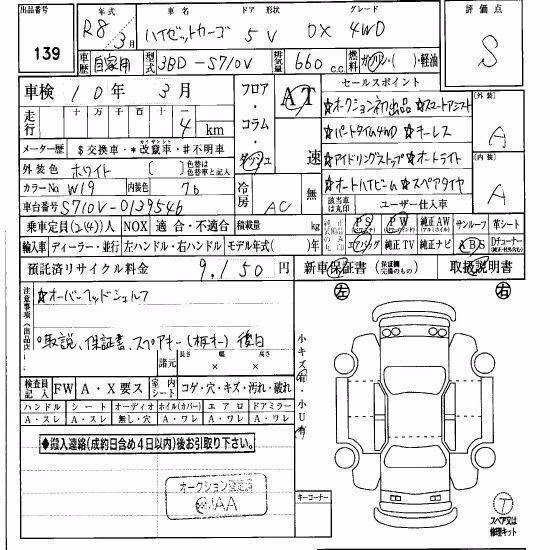 出品番号
139
年式
R8年 3月
車名
ハイゼットカーゴ
ドア 形状
5 V
グレード
DX 4WD
評価点
S
車歴
自家用
型式
3BD-S710V
排気量
660 c.c.
燃料
ガソリン・( )・軽油
車検 10年 3月
走行
十万 万 千 百 十 一
4 km
メーター歴
$ 交換車・* 改竄車・# 不明車
外装色
ホワイト
( )
色替は色替車と記入
カラーNo
W19
内装色
7b
車台番号
S710V-0139546
フロア・コラム・ダッシュ
AT
速
冷房
AC
無
セールスポイント
☆オークション初出品 ☆スマートアシスト
☆パートタイム4WD ☆キーレス
☆アイドリングストップ ☆オートライト
☆オートハイビーム ☆スペアタイヤ
該当車は丸印
ユーザー仕入車
[外装]
A
[内装]
A
乗車定員 (2(4))人
NOX 適合・不適合
積載量
kg
輸入車
ディーラー・並行
左ハンドル・右ハンドル
モデル年式( )年
PS
PW
純正AW
サンルーフ
革シート
エアバッグ
純正TV
純正ナビ
ABS
預託済リサイクル料金
9,150円
新車保証書
取扱説明書
注意事項(出品店)
☆オーバーヘッドシェルフ
○取説、保証書、スペアキー(有キー)後日
諸元
長さ 幅 高さ
× ×
検査員記入
FW
A・X要ス
室内シート
コゲ・穴・キズ・汚れ・破れ
ハンドル シート オーディオ ホイル(カバー) エアロ ドアミラー
A・スレ A・スレ 無し・穴 A・ワレ A・ワレ A・ワレ
◆搬入連絡(成約日含め4日以内)後お引取り下さい。
オークション登定済
JAA
小キズ有・小U有
キーコーナー
左
右
T
スペア又は修理キット